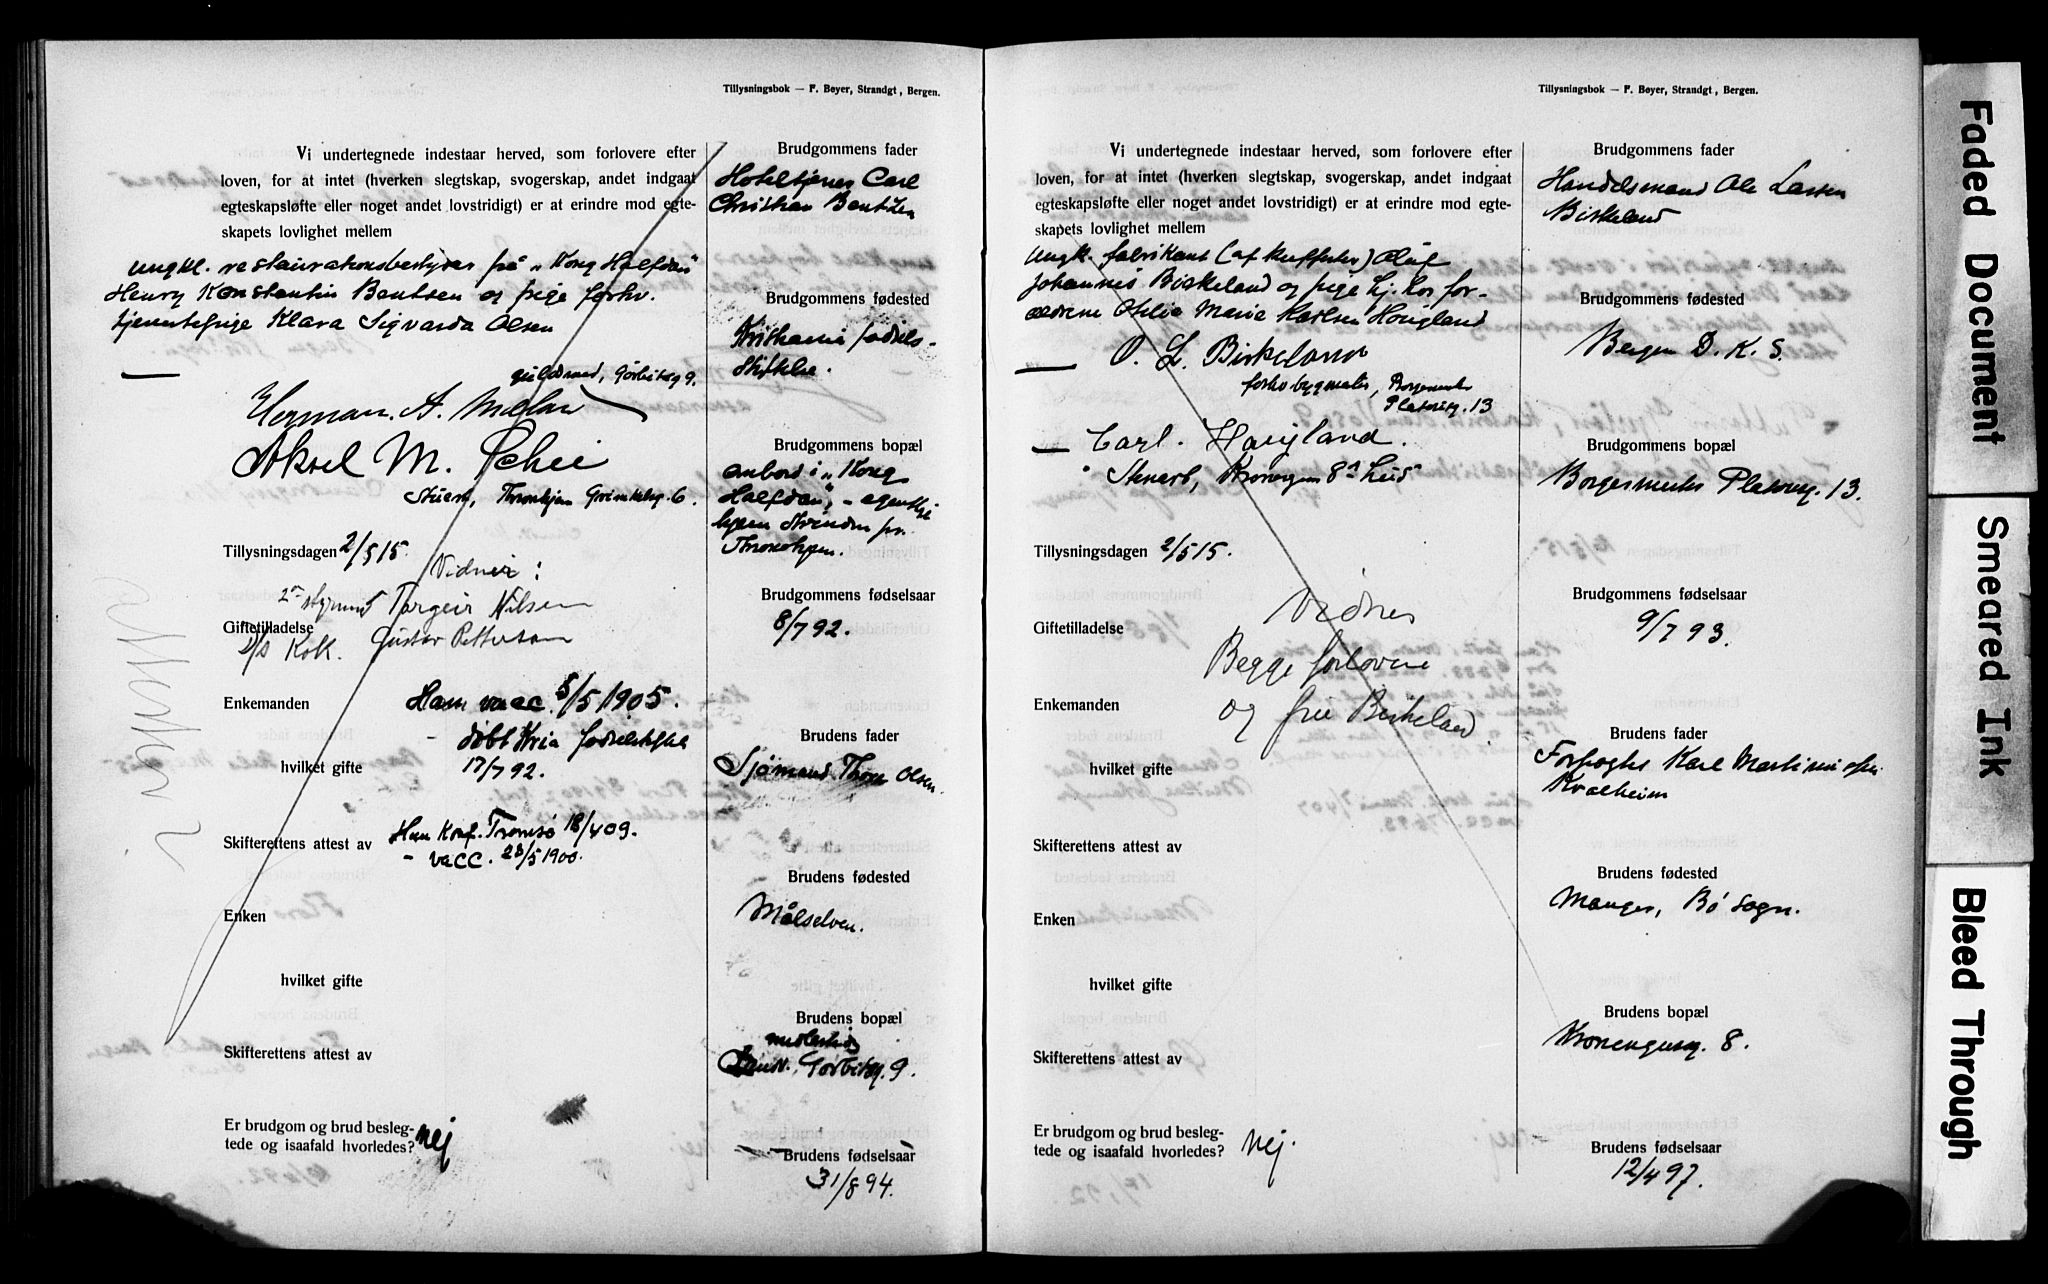 Tillysningsbok — F. Bøyer, Strandgt, Bergen.
Vi undertegnede indestaar herved, som forlovere efter
loven, for at intet (hverken slegtskap, svogerskap, andet indgaat
egteskapsløfte eller noget andet lovstridigt) er at erindre mod egte-
skapets lovlighet mellem
ungkl. restaurationsbestyrer på "Kong Halfdan"
Henry Konstantin Bentsen og pige forhv.
tjenestepige Klara Sigvarda Olsen
guldsmed, Gørbitzg 9.
Herman. A.
Aksel M. Schei
Stuert, Thronhjem 6.
Tillysningsdagen 2/5 15.
Vidner:
2en styrmand Torgeir Nilsen
Giftetilladelse
D/S Kok. Gustav Pettersen
Enkemanden
Han vacc. 5/5 1905.
- døbt Kria fødselsstiftelse
17/7 92.
hvilket gifte
Hun konf. Tromsø 18/4 09.
- vacc. 23/5 1900.
Skifterettens attest av
Enken
hvilket gifte
Skifterettens attest av
Er brudgom og brud besleg-
tede og isaafald hvorledes? nej
Brudgommens fader
Hoteltjener Carl
Christian Bentzen
Brudgommens fødested
Kristiania fødsels-
stiftelse.
Brudgommens bopæl
ombord i "Kong
Halfdan", - egentlig
hjem Strinden pr.
Thronhjem.
Brudgommens fødselsaar
8/7 92.
Brudens fader
Sjømand Thor Olsen.
Brudens fødested
Målselven.
Brudens bopæl
midlertidig
Gørbitzg. 9.
Brudens fødselsaar
31/8 94.
Tillysningsbok — F. Bøyer, Strandgt, Bergen.
Vi undertegnede indestaar herved, som forlovere efter
loven, for at intet (hverken slegtskap, svogerskap, andet indgaat
egteskapsløfte eller noget andet lovstridigt) er at erindre mod egte-
skapets lovlighet mellem
ungk. fabrikant (af kufferter) Oluf
Johannes Birkeland og pige hj. hos for-
ældrene Otilie Marie Karlsen Hougland
O. L. Birkeland
forhv bygmester, Borgermester
Platousg. 13
Carl. Haugland.
Stuert, 8
Tillysningsdagen 2/5 15.
Vidner
Giftetilladelse
Begge forlovere
Enkemanden
og frue Birkeland.
hvilket gifte
Skifterettens attest av
Enken
hvilket gifte
Skifterettens attest av
Er brudgom og brud besleg-
tede og isaafald hvorledes? nej.
Brudgommens fader
Handelsmand Ole Larsen
Birkeland
Brudgommens fødested
Bergen D. K. S.
Brudgommens bopæl
Borgermester Platousg. 13.
Brudgommens fødselsaar
9/7 93.
Brudens fader
Karl Martinius
Kvalheim
Brudens fødested
Manger, Bø sogn.
Brudens bopæl
8.
Brudens fødselsaar
12/4 97.
Faded Document
Smeared Ink
Bleed Through